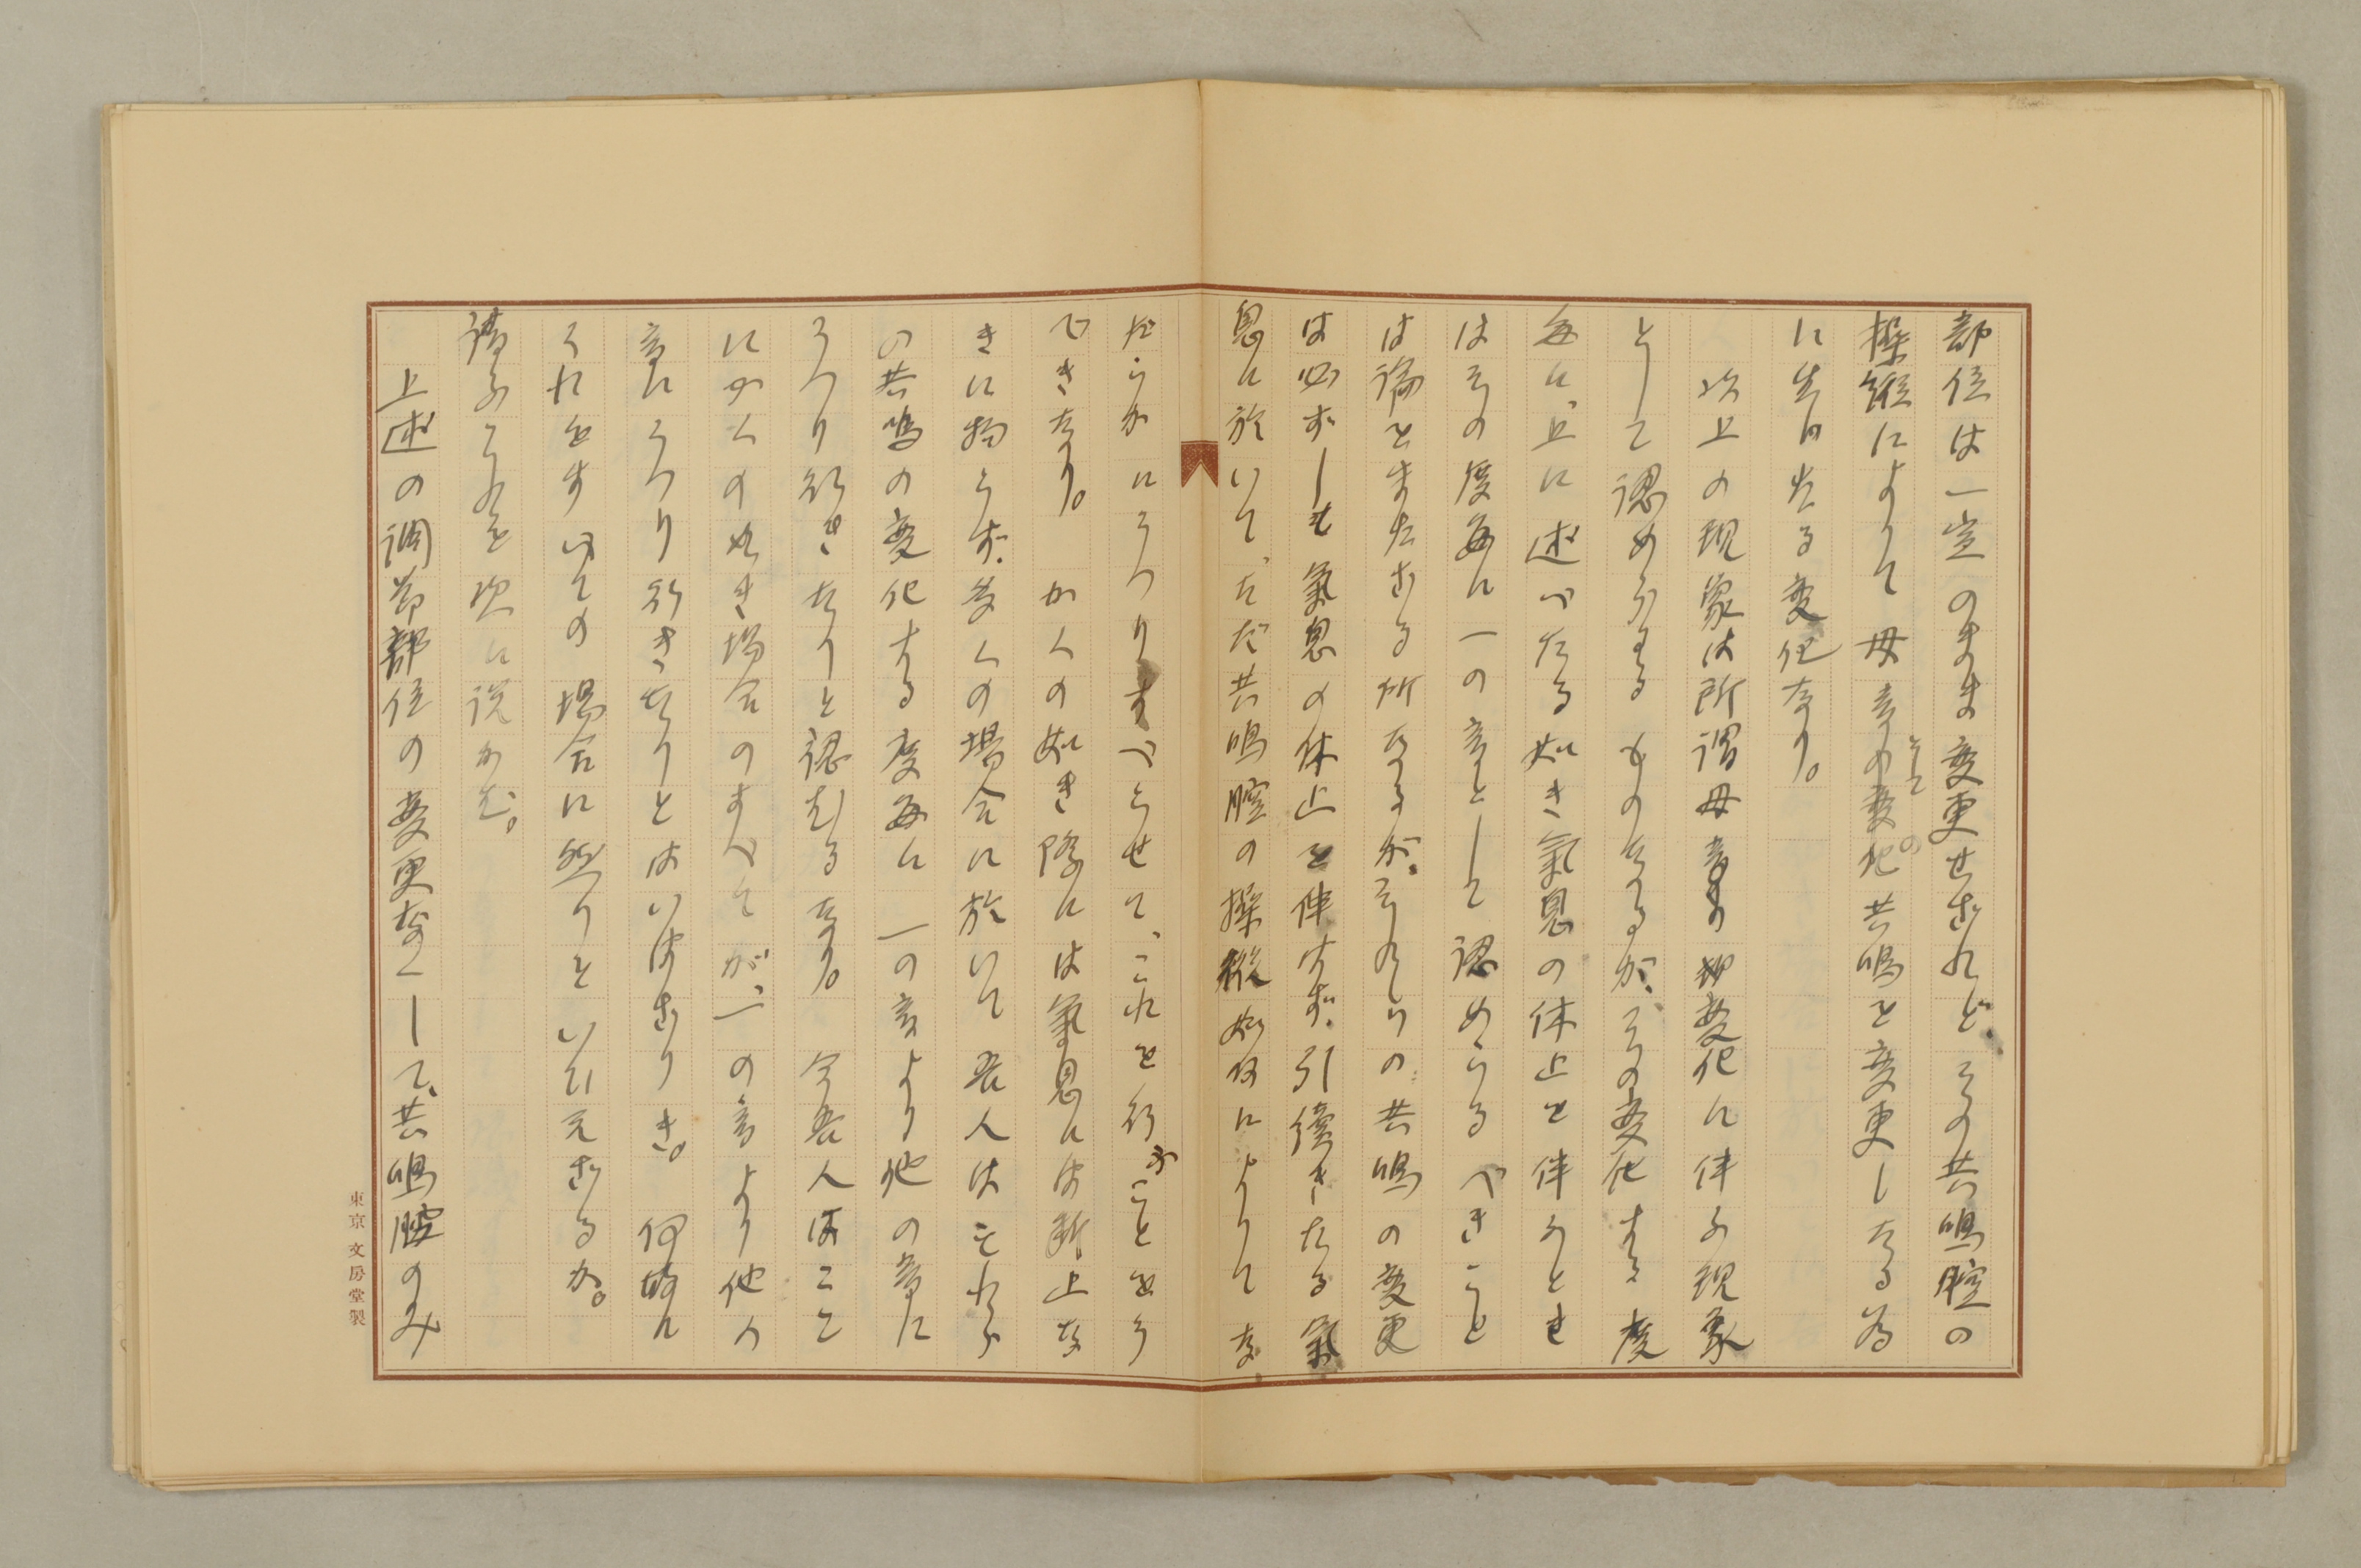 部位は一定のまま変更せざれど、その共鳴腔の
操縦によりて母音の変化共鳴を変更したる為
として の
に生じたる変化なり。
以上の現象は所謂母音の変化に伴ふ現象
として認めらるるものなるが、その変化する度
毎に、上に述べたる如き氣息の休止を伴ふとき
はその度毎に一の音として認めらるべきこと
は論をまたざる所なるが、それらの共鳴の変更
は必ずしも氣息の休止を伴はず、引續きたる氣
息に於いて、ただ共鳴腔の操縦如何によりてな
だらかにうつりすべらせて、これを行ふことをう
べきなり。かくの如き際には氣息には断止な
きに拘らず、多くの場合に於いて吾人はそれら
の共鳴の変化する度毎に一の音より他の音に
うつり行きたりと認むるなり。今吾人はここ
にかくの如き場合のすべてが、一の音より他の
音にうつり行きたりとはいはざりき。何故に
それをすべての場合に然りといひえざるか。
請ふこれを次に説かむ。
上述の調節部位の変更なくして、共鳴腔のみ
東京文房堂製